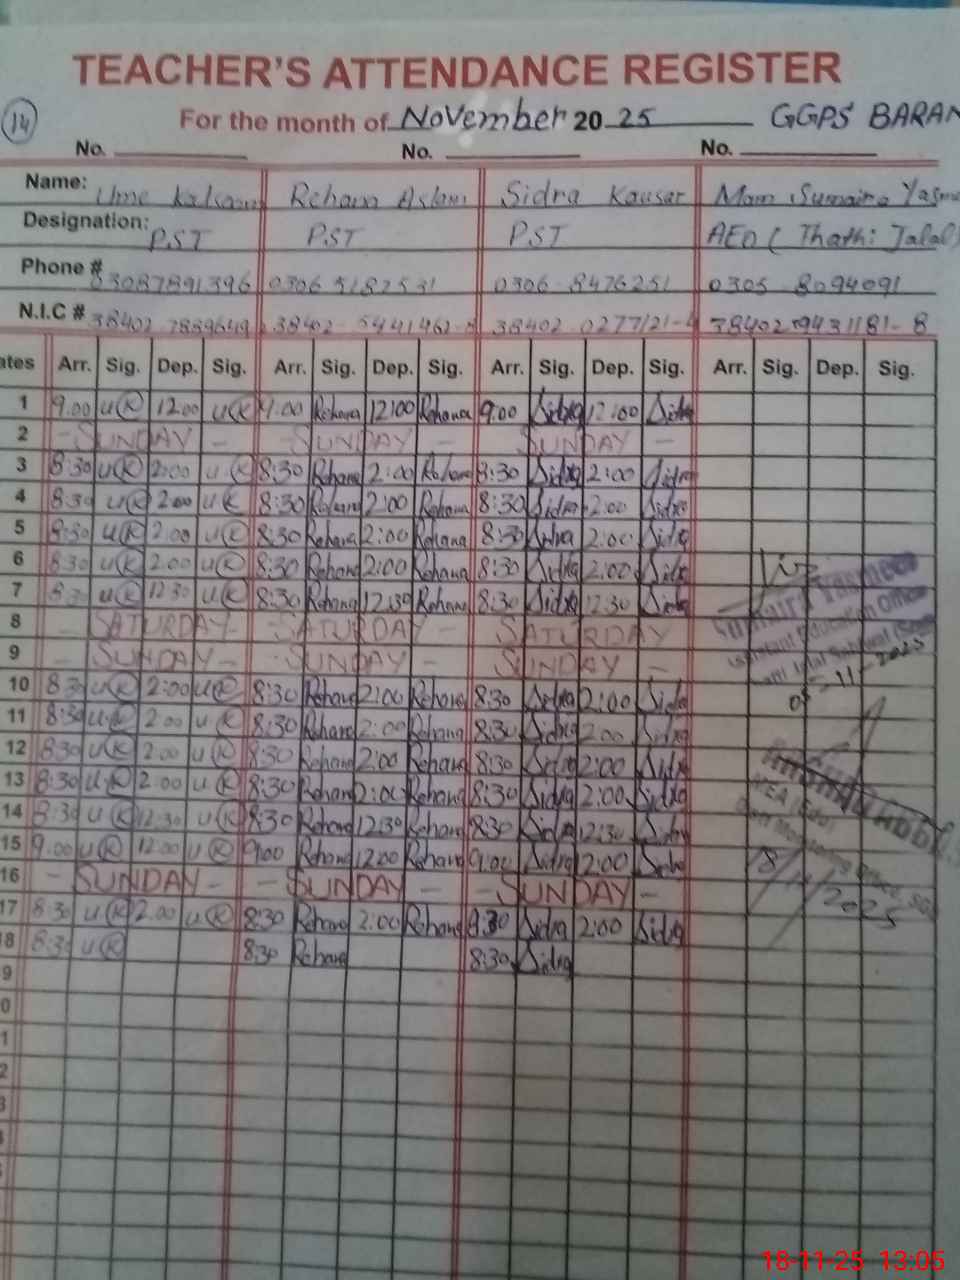 TEACHER'S ATTENDANCE REGISTER
14 For the month of November 20 25 GGPS BARAN
No. No. No.
Name: Ume Kalsoom Rehana Aslam Sidra Kausar Mam Sumaira Yasme
Designation: P.ST P.ST P.ST AEO ( Thathi Jalal )
Phone # 03087891396 0306 5182531 0306-8476251 0305-8094091
N.I.C # 38402 7889649 38402-5441462- 38402 0277121-4 38402 9431181-8
ates Arr. Sig. Dep. Sig. Arr. Sig. Dep. Sig. Arr. Sig. Dep. Sig. Arr. Sig. Dep. Sig.
1 9.00 UK 12.00 UK 9:00 Rehana 12:00 Rehana 9:00 Sidra 12:00 Sidra
2 - SUNDAY - - SUNDAY - SUNDAY -
3 8:30 UK 2:00 UK 8:30 Rehana 2:00 Rehana 8:30 Sidra 2:00 Sidra
4 8:30 UK 2:00 UK 8:30 Rehana 2:00 Rehana 8:30 Sidra 2:00 Sidra
5 8:30 UK 2:00 UK 8:30 Rehana 2:00 Rehana 8:30 Sidra 2:00 Sidra
6 8:30 UK 2:00 UK 8:30 Rehana 2:00 Rehana 8:30 Sidra 2:00 Sidra
7 8:30 UK 12:30 UK 8:30 Rehana 12:30 Rehana 8:30 Sidra 12:30 Sidra
Sumaira Yasmeen
Assistant Education Officer
8 - SATURDAY - - SATURDAY - SATURDAY
9 - SUNDAY - - SUNDAY - SUNDAY -
-11-2025
10 8:30 UK 2:00 UK 8:30 Rehana 2:00 Rehana 8:30 Sidra 2:00 Sidra
11 8:30 UK 2:00 UK 8:30 Rehana 2:00 Rehana 8:30 Sidra 2:00 Sidra
12 8:30 UK 2:00 UK 8:30 Rehana 2:00 Rehana 8:30 Sidra 2:00 Sidra
13 8:30 UK 2:00 UK 8:30 Rehana 2:00 Rehana 8:30 Sidra 2:00 Sidra
MEA (Edu)
14 8:30 UK 12:30 UK 8:30 Rehana 12:30 Rehana 8:30 Sidra 12:30 Sidra
15 9.00 UK 12.00 UK 9:00 Rehana 12:00 Rehana 9:00 Sidra 12:00 Sidra
16 - SUNDAY - - SUNDAY - - SUNDAY -
18/11/2025
17 8:30 UK 2.00 UK 8:30 Rehana 2:00 Rehana 8:30 Sidra 2:00 Sidra
8 8:30 UK 8:30 Rehana 8:30 Sidra
9
0
1
2
3
18-11-25 13:05